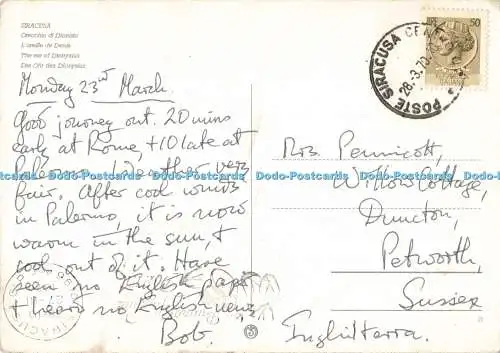 SIRACUSA
Orecchio di Dionisio
L'oreille de Denis
The ear of Dionysius
Das Ohr des Dionysius
Monday 23rd March.
Good journey out. 20 mins
early at Rome + 10 late at
Palermo. Weather very
fair. After cool winds
in Palermo, it is now
warm in the sun, &
cool out of it. Have
seen no English paper
& heard no English news
Bob.
50
POSTE SIRACUSA
28.-3.70
Mrs. Pennicott,
Willow Cottage,
Duncton,
Petworth,
Sussex
Inghilterra.
Dodo-Postcards Dodo-Postcards Dodo-Postcards Dodo-Postcards Dodo-Postcards Dodo-Postcards